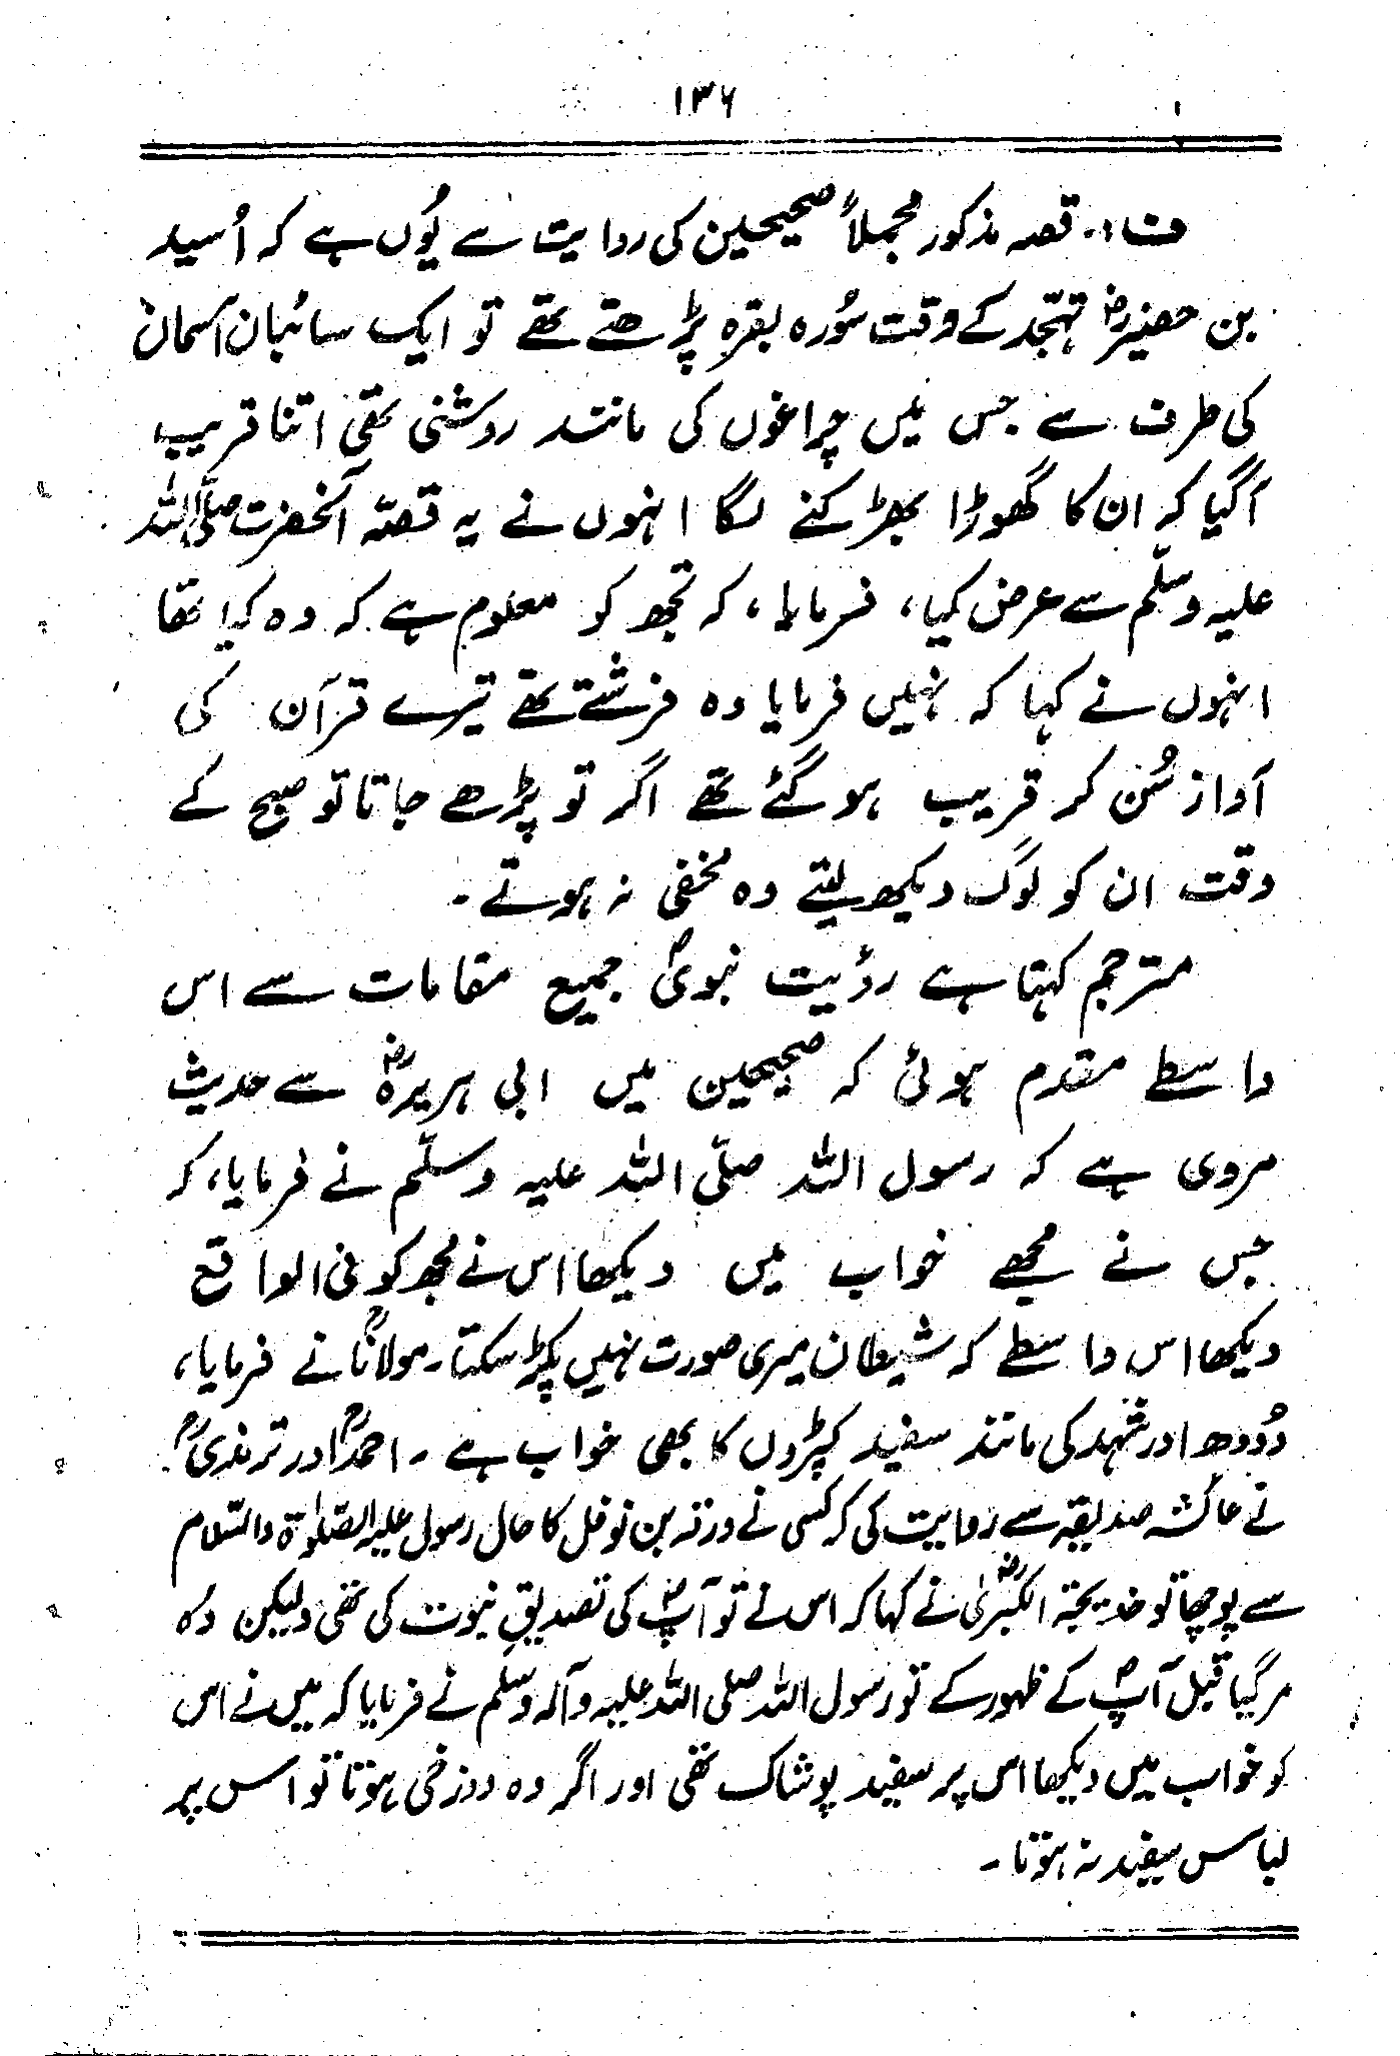 ۱۳۶
ف۱:۔ قصہ مذکور مجملاً صحیحین کی روایت سے یُوں ہے کہ اُسید
بن حضیرؓ تہجّد کے وقت سُورہ بقرہ پڑھتے تھے تو ایک سائبان آسمان
کی طرف سے جس میں چراغوں کی مانند روشنی تھی اتنا قریب
آگیا کہ ان کا گھوڑا بھڑکنے لگا انہوں نے یہ قصّہ آنحضرت صلّی اللہ
علیہ وسلّم سے عرض کیا، فرمایا، کہ تجھ کو معلوم ہے کہ وہ کیا تھا
انہوں نے کہا کہ نہیں فرمایا وہ فرشتے تھے تیرے قرآن کی
آواز سُن کر قریب ہو گئے تھے اگر تو پڑھے جاتا تو صبح کے
وقت ان کو لوگ دیکھ لیتے وہ مخفی نہ ہوتے۔
مترجم کہتا ہے رؤیت نبویؐ جمیع مقامات سے اس
واسطے مقدم ہوئی کہ صحیحین میں ابی ہریرہؓ سے حدیث
مروی ہے کہ رسول اللہ صلّی اللہ علیہ وسلّم نے فرمایا، کہ
جس نے مجھے خواب میں دیکھا اس نے مجھ کو فی الواقع
دیکھا اس واسطے کہ شیطان میری صورت نہیں پکڑ سکتا۔ مولاناؒ نے فرمایا،
دُودھ اور شہد کی مانند سفید کپڑوں کا بھی خواب ہے۔ احمدؒ اور ترمذیؒ
نے عائشہ صدیقہ سے روایت کی کہ کسی نے ورقہ بن نوفل کا حال رسول علیہ الصّلوٰۃ والسّلام
سے پوچھا تو خدیجۃ الکبریٰؓ نے کہا کہ اس نے تو آپؐ کی تصدیقِ نبوت کی تھی ولیکن وُہ
مرگیا قبل آپؐ کے ظہور کے تو رسول اللہ صلی اللہ علیہ وآلہ وسلّم نے فرمایا کہ میں نے اس
کو خواب میں دیکھا اس پر سفید پوشاک تھی اور اگر وہ دوزخی ہوتا تو اس پر
لباس سفید نہ ہوتا۔